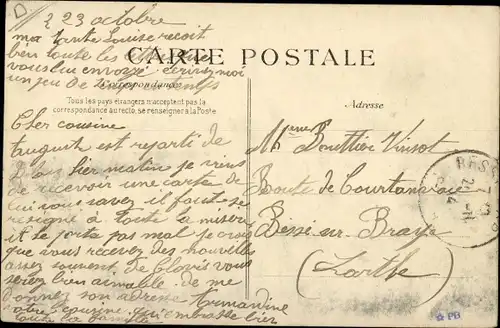 D.
2 23 octobre
ma tante Louise reçoit
bien toutes les
vous lui envoyé écrivez moi
un jeu de
CARTE POSTALE
Correspondance
Tous les pays étrangers n'acceptent pas la
correspondance au recto, se renseigner à la Poste
Adresse
Cher cousine
auguste est reparti de
Blois hier matin je viens
de recevoir une carte de
lui vous savez il faut se
résigné a toute la misère
il se porte pas mal je crois
que vous recevez des nouvelles
assez souvent de Clovis vous
serez bien aimable de me
donnez son adresse Armandine
votre cousine qui embrasse bien
toute la famille
Mme Bouttier Vinsot
Route de Courtanvaux
Bessé sur Braye
(Sarthe)
BESSE
PB